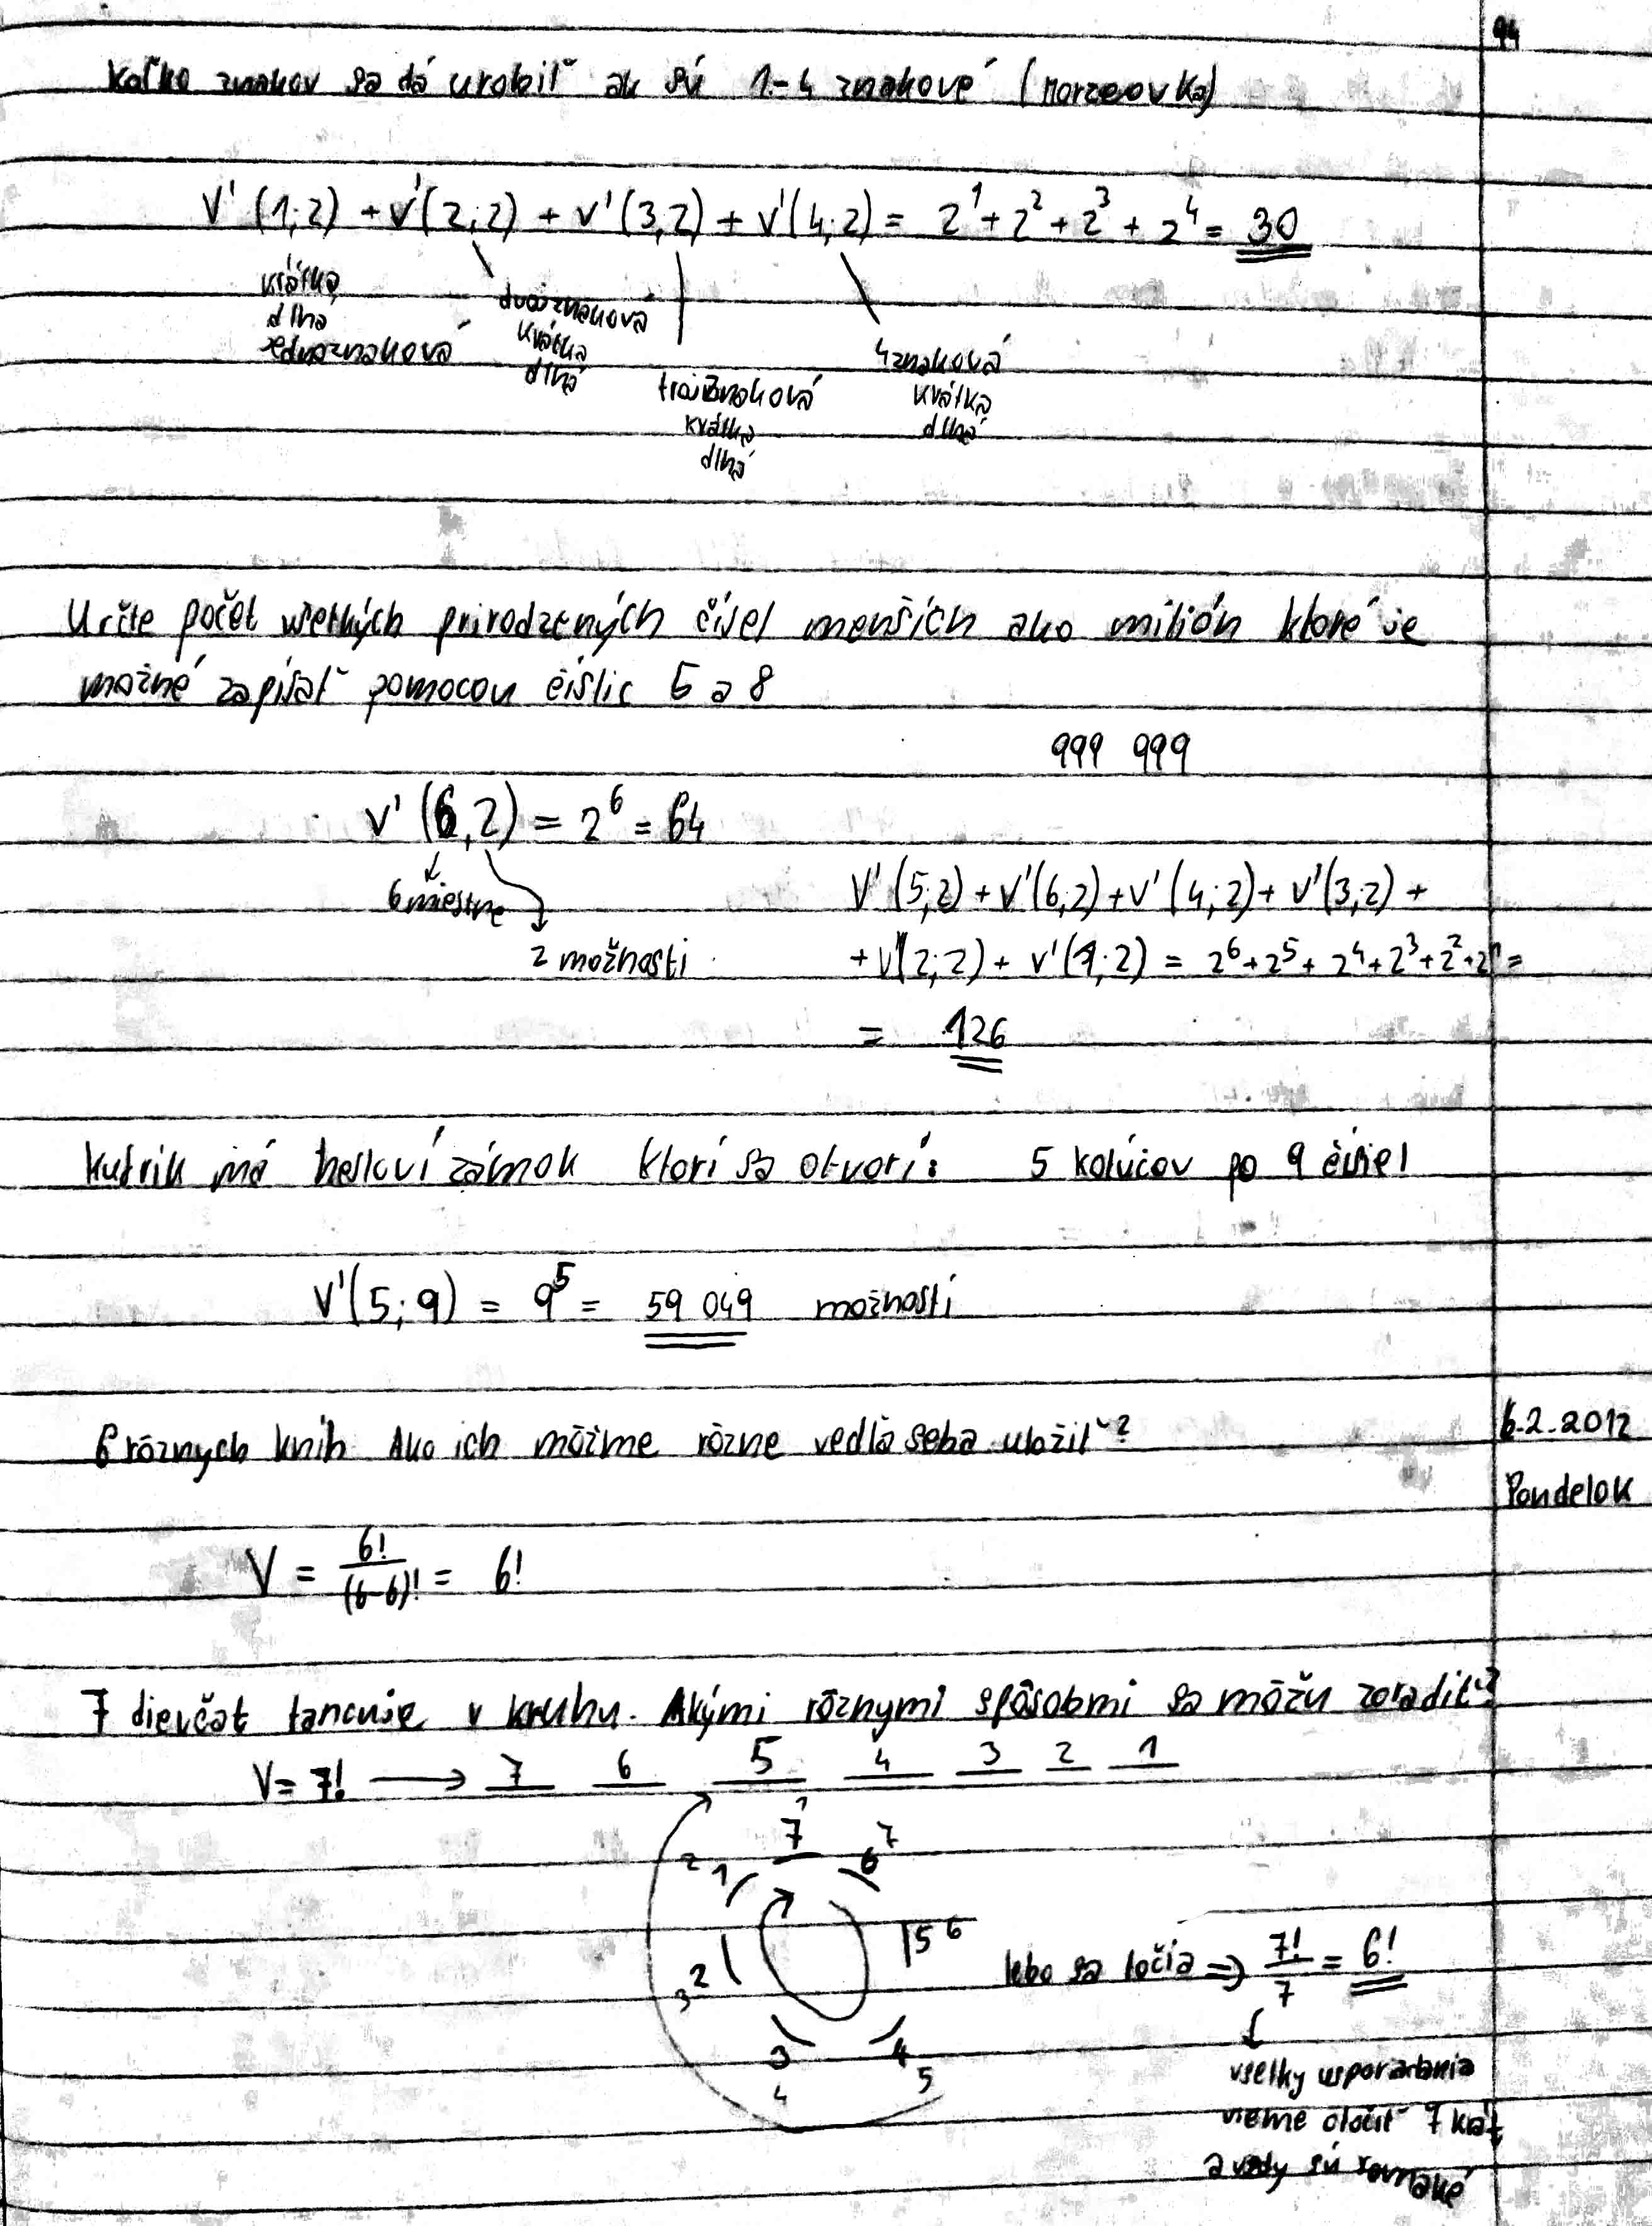 94
Koľko znakov sa dá urobiť ak sú 1-4 znakové (Morzeovka)
V'(1;2) + V'(2;2) + V'(3,2) + V'(4;2) = 2¹ + 2² + 2³ + 2⁴ = 30
krátka
dlhá
jednoznaková
dvojznaková
krátka
dlhá
trojznaková
krátka
dlhá
4znaková
krátka
dlhá
Určte počet všetkých prirodzených čísel menších ako milión ktoré je
možné zapísať pomocou číslic 5 a 8
999 999
V'(6,2) = 2⁶ = 64
6 miestne
2 možnosti
V'(5;2) + V'(6,2) + V'(4;2) + V'(3,2) +
+ V'(2;2) + V'(1;2) = 2⁶ + 2⁵ + 2⁴ + 2³ + 2² + 2¹ =
= 126
Kufrík má hesloví zámok ktorí sa otvorí: 5 kolúčov po 9 čísiel
V'(5;9) = 9⁵ = 59 049 možností
6.2.2012
Pondelok
6 rôznych kníh. Ako ich môžme rôzne vedľa seba uložiť?
V = 6!/(6-6)! = 6!
7 dievčat tancuje v kruhu. Akými rôznymi spôsobmi sa môžu zoradiť?
V = 7! → 7 6 5 4 3 2 1
1
7 7
2 1 6
5 6
3 2
3 4
4 5
lebo sa točia ⇒ 7!/7 = 6!
všetky usporadania
vieme otočiť 7 krát
a vždy sú rovnaké